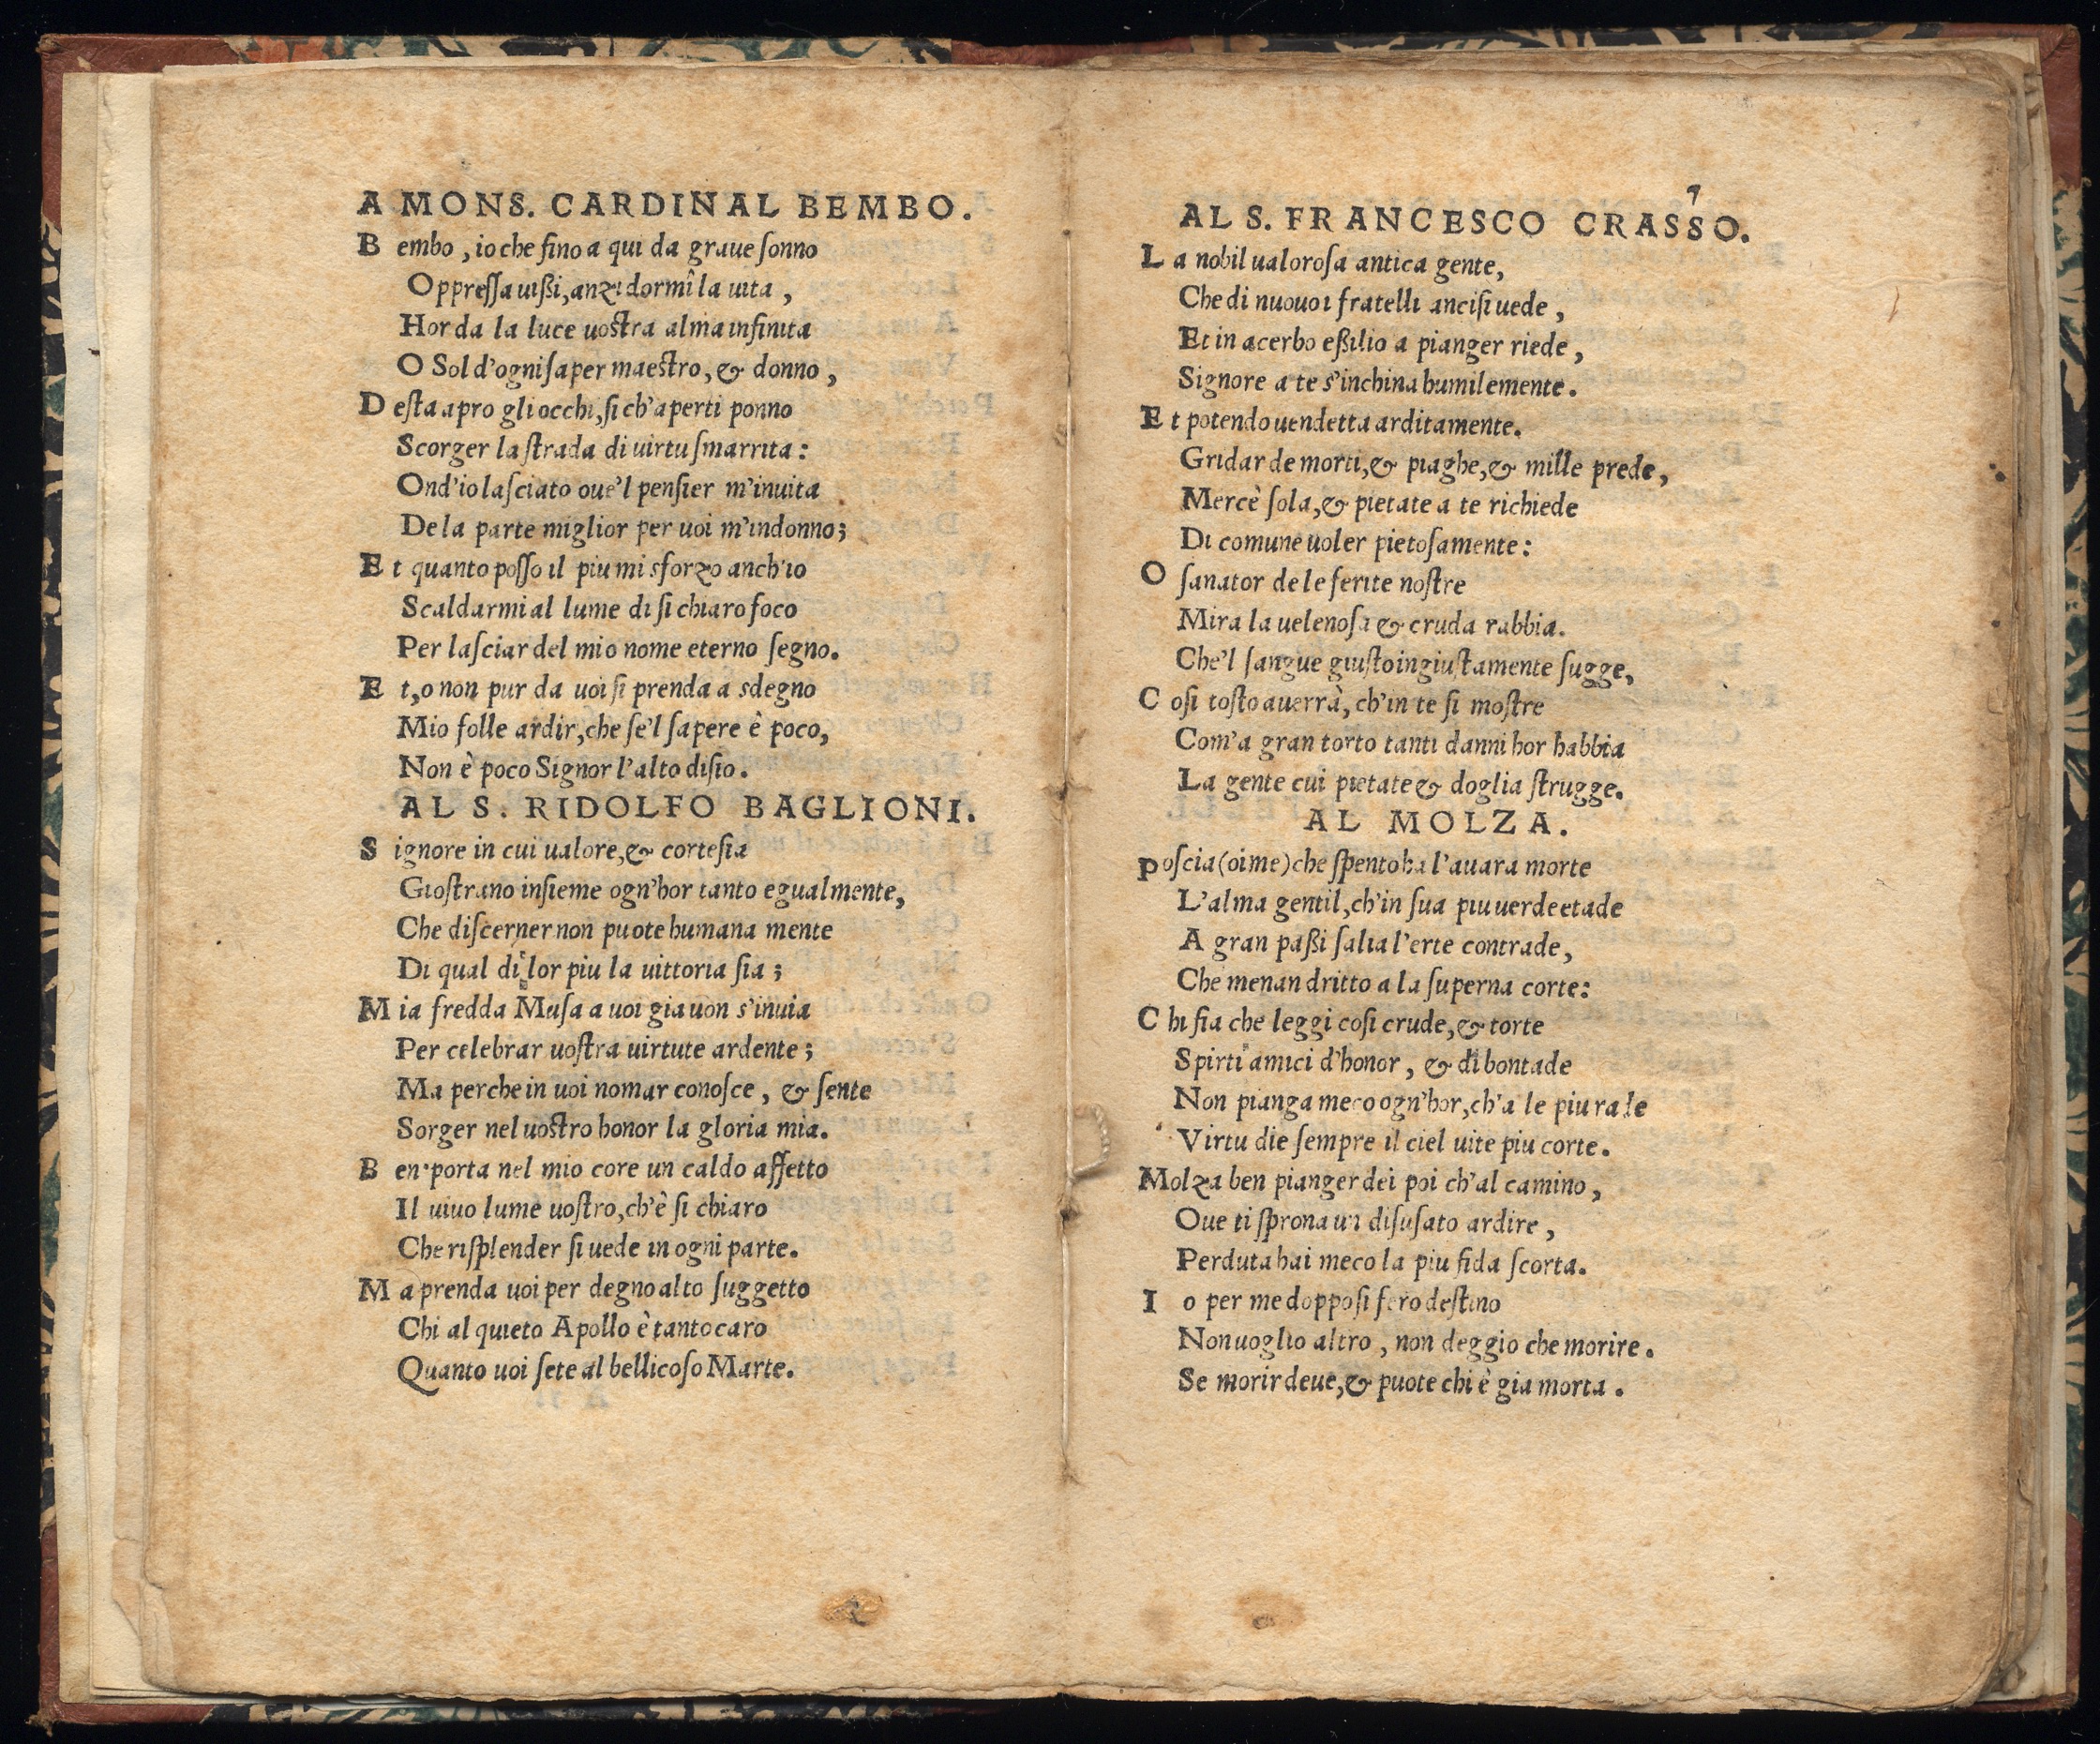 A MONS. CARDINAL BEMBO.
B embo, io che fino a qui da graue ſonno
Oppreſſa uißi, anzi dormî la uita,
Hor da la luce uoſtra alma infinita
O Sol d'ogni ſaper maeſtro, & donno,
D eſta apro gli occhi, ſi ch'aperti ponno
Scorger la ſtrada di uirtu ſmarrita:
Ond'io laſciato oue'l penſier m'inuita
De la parte miglior per uoi m'indonno;
E t quanto poſſo il piu mi sforzo anch'io
Scaldarmi al lume di ſi chiaro foco
Per laſciar del mio nome eterno ſegno.
E t, o non pur da uoi ſi prenda a sdegno
Mio folle ardir, che ſe'l ſapere è poco,
Non è poco Signor l'alto diſio.
AL S. RIDOLFO BAGLIONI.
S ignore in cui ualore, & corteſia
Gioſtrano inſieme ogn'hor tanto egualmente,
Che diſcerner non puote humana mente
Di qual di lor piu la uittoria ſia;
M ia fredda Muſa a uoi gia uon s'inuia
Per celebrar uoſtra uirtute ardente;
Ma perche in uoi nomar conoſce, & ſente
Sorger nel uoſtro honor la gloria mia.
B en porta nel mio core un caldo affetto
Il uiuo lume uoſtro, ch'è ſi chiaro
Che riſplender ſi uede in ogni parte.
M a prenda uoi per degno alto ſuggetto
Chi al quieto Apollo è tanto caro
Quanto uoi ſete al bellicoſo Marte.
7
AL S. FRANCESCO CRASSO.
L a nobil ualoroſa antica gente,
Che di nuouo i fratelli anciſi uede,
Et in acerbo eßilio a pianger riede,
Signore a te s'inchina humilemente.
E t potendo uendetta arditamente.
Gridar de morti, & piaghe, & mille prede,
Mercè ſola, & pietate a te richiede
Di comune uoler pietoſamente:
O ſanator de le ferite noſtre
Mira la uelenoſa & cruda rabbia.
Che'l ſangue giuſto ingiuſtamente ſugge,
C oſi toſto auerrà, ch'in te ſi moſtre
Com'a gran torto tanti danni hor habbia
La gente cui pietate & doglia ſtrugge.
AL MOLZA.
P oſcia (oime) che ſpento ha l'auara morte
L'alma gentil, ch'in ſua piu uerde etade
A gran paßi ſalia l'erte contrade,
Che menan dritto a la ſuperna corte:
C hi fia che leggi coſi crude, & torte
Spirti amici d'honor, & di bontade
Non pianga meco ogn'hor, ch'a le piu rare
Virtu die ſempre il ciel uite piu corte.
Molza ben pianger dei poi ch'al camino,
Oue ti ſprona un diſuſato ardire,
Perduta hai meco la piu fida ſcorta.
I o per me doppo ſi fero deſtino
Non uoglio altro, non deggio che morire.
Se morir deue, & puote chi è gia morta.